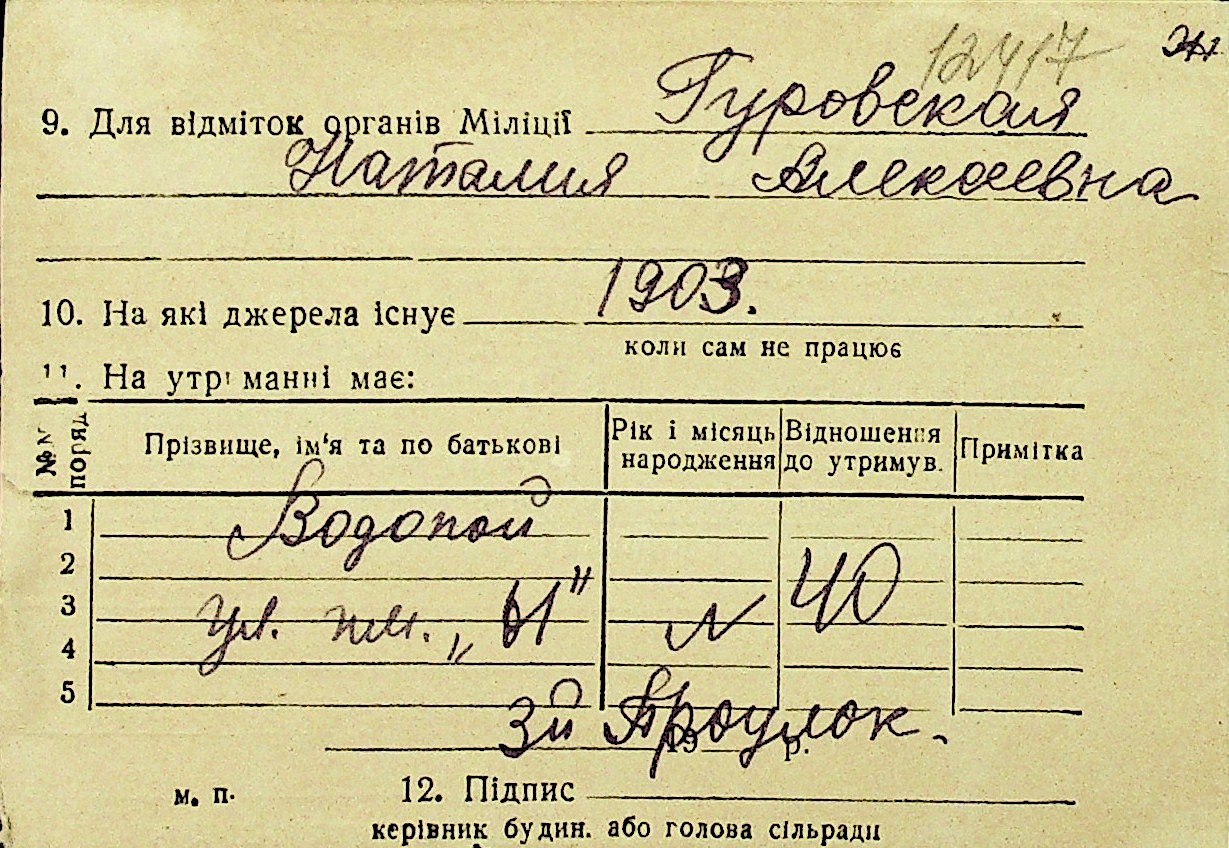 12417
9. Для відміток органів Міліції Гуровская
Наталия Алексеевна
10. На які джерела існує 1903.
коли сам не працює
11. На утриманні має:
№№ поряд Прізвище, ім'я та по батькові Рік і місяць народження Відношення до утримув. Примітка
1 Водопой
2
3 ул. пл. „Ы" № 40
4
5
3й Проулок.
19 р.
м. п. 12. Підпис
керівник будин. або голова сільради